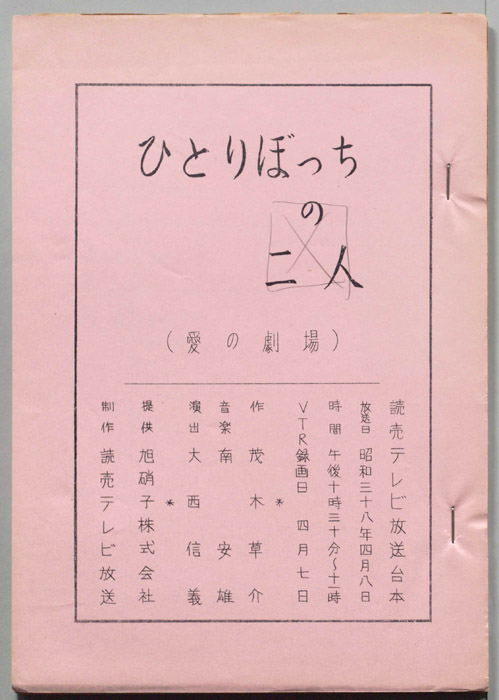 ひとりぼっち
の
二人
(愛の劇場)
読売テレビ放送台本
放送日 昭和三十八年四月八日
時間 午後十時三十分~十一時
VTR録画日 四月七日
*
作 茂木草介
音楽 南安雄
演出 大西信義
*
提供 旭硝子株式会社
制作 読売テレビ放送